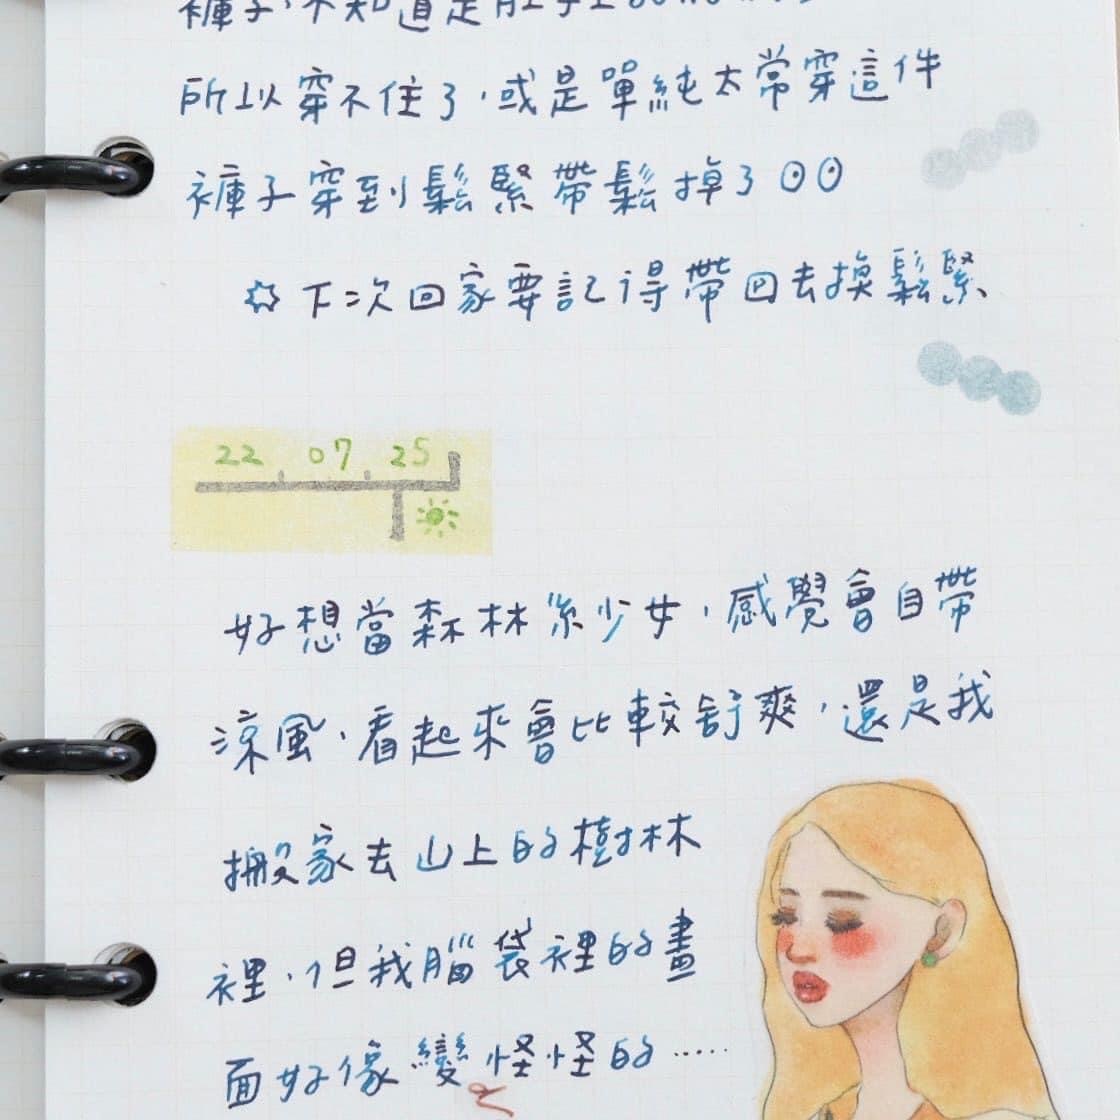 褲子,不知道是肚子
所以穿不住了,或是單純太常穿這件
褲子穿到鬆緊帶鬆掉了
☆下次回家要記得帶回去換鬆緊、
22 07 25
好想當森林系少女,感覺會自帶
涼風、看起來會比較舒爽,還是我
搬家去山上的樹林
裡、但我腦袋裡的畫
面好像變怪怪的……